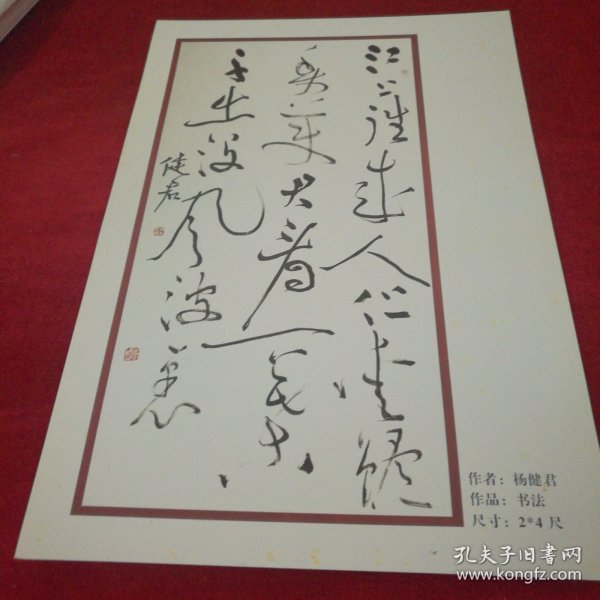 江上往來人但愛鱸
魚美君看一葉
舟出没風波裏
健君
作者：杨健君
作品：书法
尺寸：2*4 尺
孔夫子旧书网
www.kongfz.com